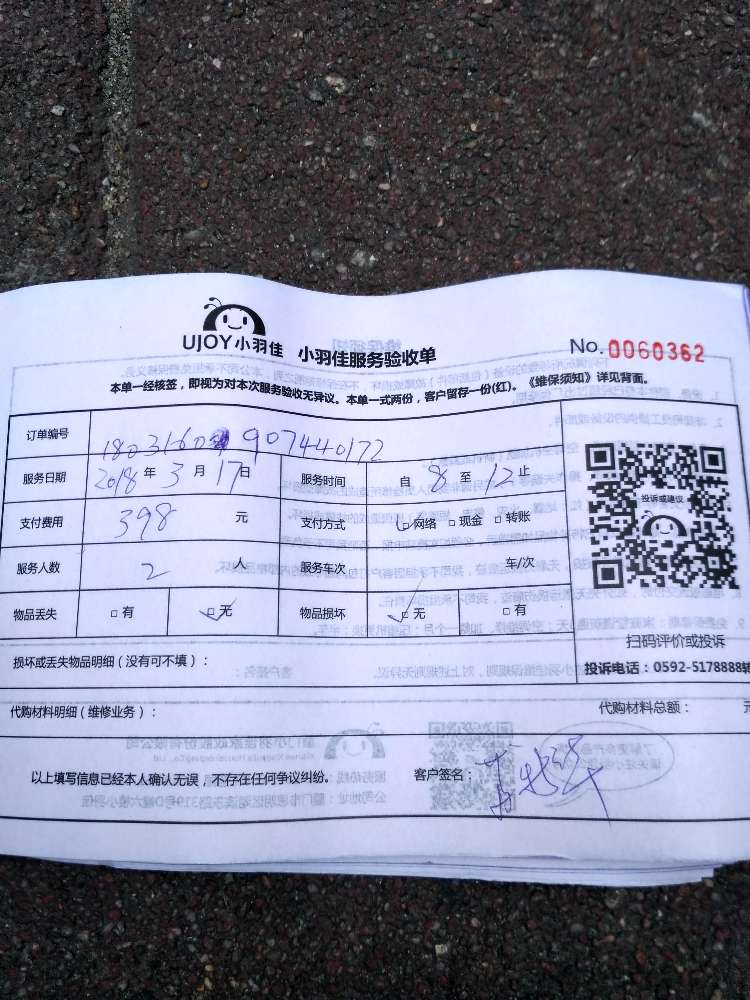 UJOY小羽佳 小羽佳服务验收单 No.0060362
本单一经核签，即视为对本次服务验收无异议。本单一式两份，客户留存一份(红)。《维保须知》详见背面。
订单编号 907440172
服务日期 2018年3月17日 服务时间 自8至12止
支付费用 398 元 支付方式 □网络 □现金 □转账
服务人数 2 人 服务车次 车/次
物品丢失 □有 ☑无 物品损坏 ☑无 □有
投诉或建议
扫码评价或投诉
损坏或丢失物品明细（没有可不填）：
投诉电话：0592-5178888转
代购材料明细（维修业务）： 代购材料总额： 元
以上填写信息已经本人确认无误，不存在任何争议纠纷。 客户签名：